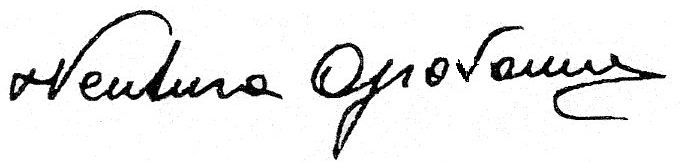 Ventura Giovanni